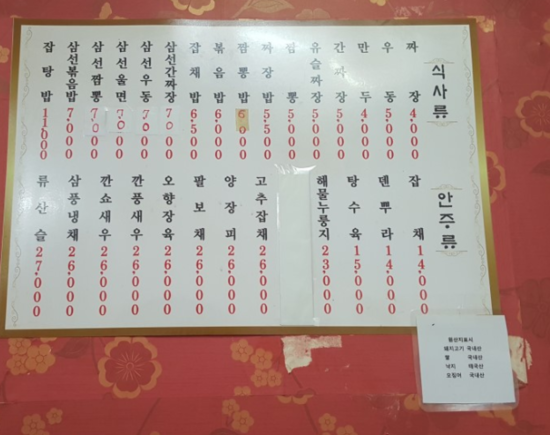 식사류
짜장 4,000
우동 5,000
만두 4,000
간짜장 5,000
유슬짜장 5,000
짬뽕 5,000
짜장밥 5,500
짬뽕밥
볶음밥 6,000
잡채밥 6,500
삼선간짜장 7,000
삼선우동 7,000
삼선울면 7,000
삼선짬뽕 7,000
삼선볶음밥 7,000
잡탕밥 11,000
안주류
잡채 14,000
덴뿌라 14,000
탕수육 15,000
해물누룽지 23,000
고추잡채 26,000
양장피 26,000
팔보채 26,000
오향장육 26,000
깐풍새우 26,000
깐쇼새우 26,000
삼풍냉채 26,000
류산슬 27,000
돼지고기 국내산
쌀 국내산
낙지 태국산
오징어 국내산